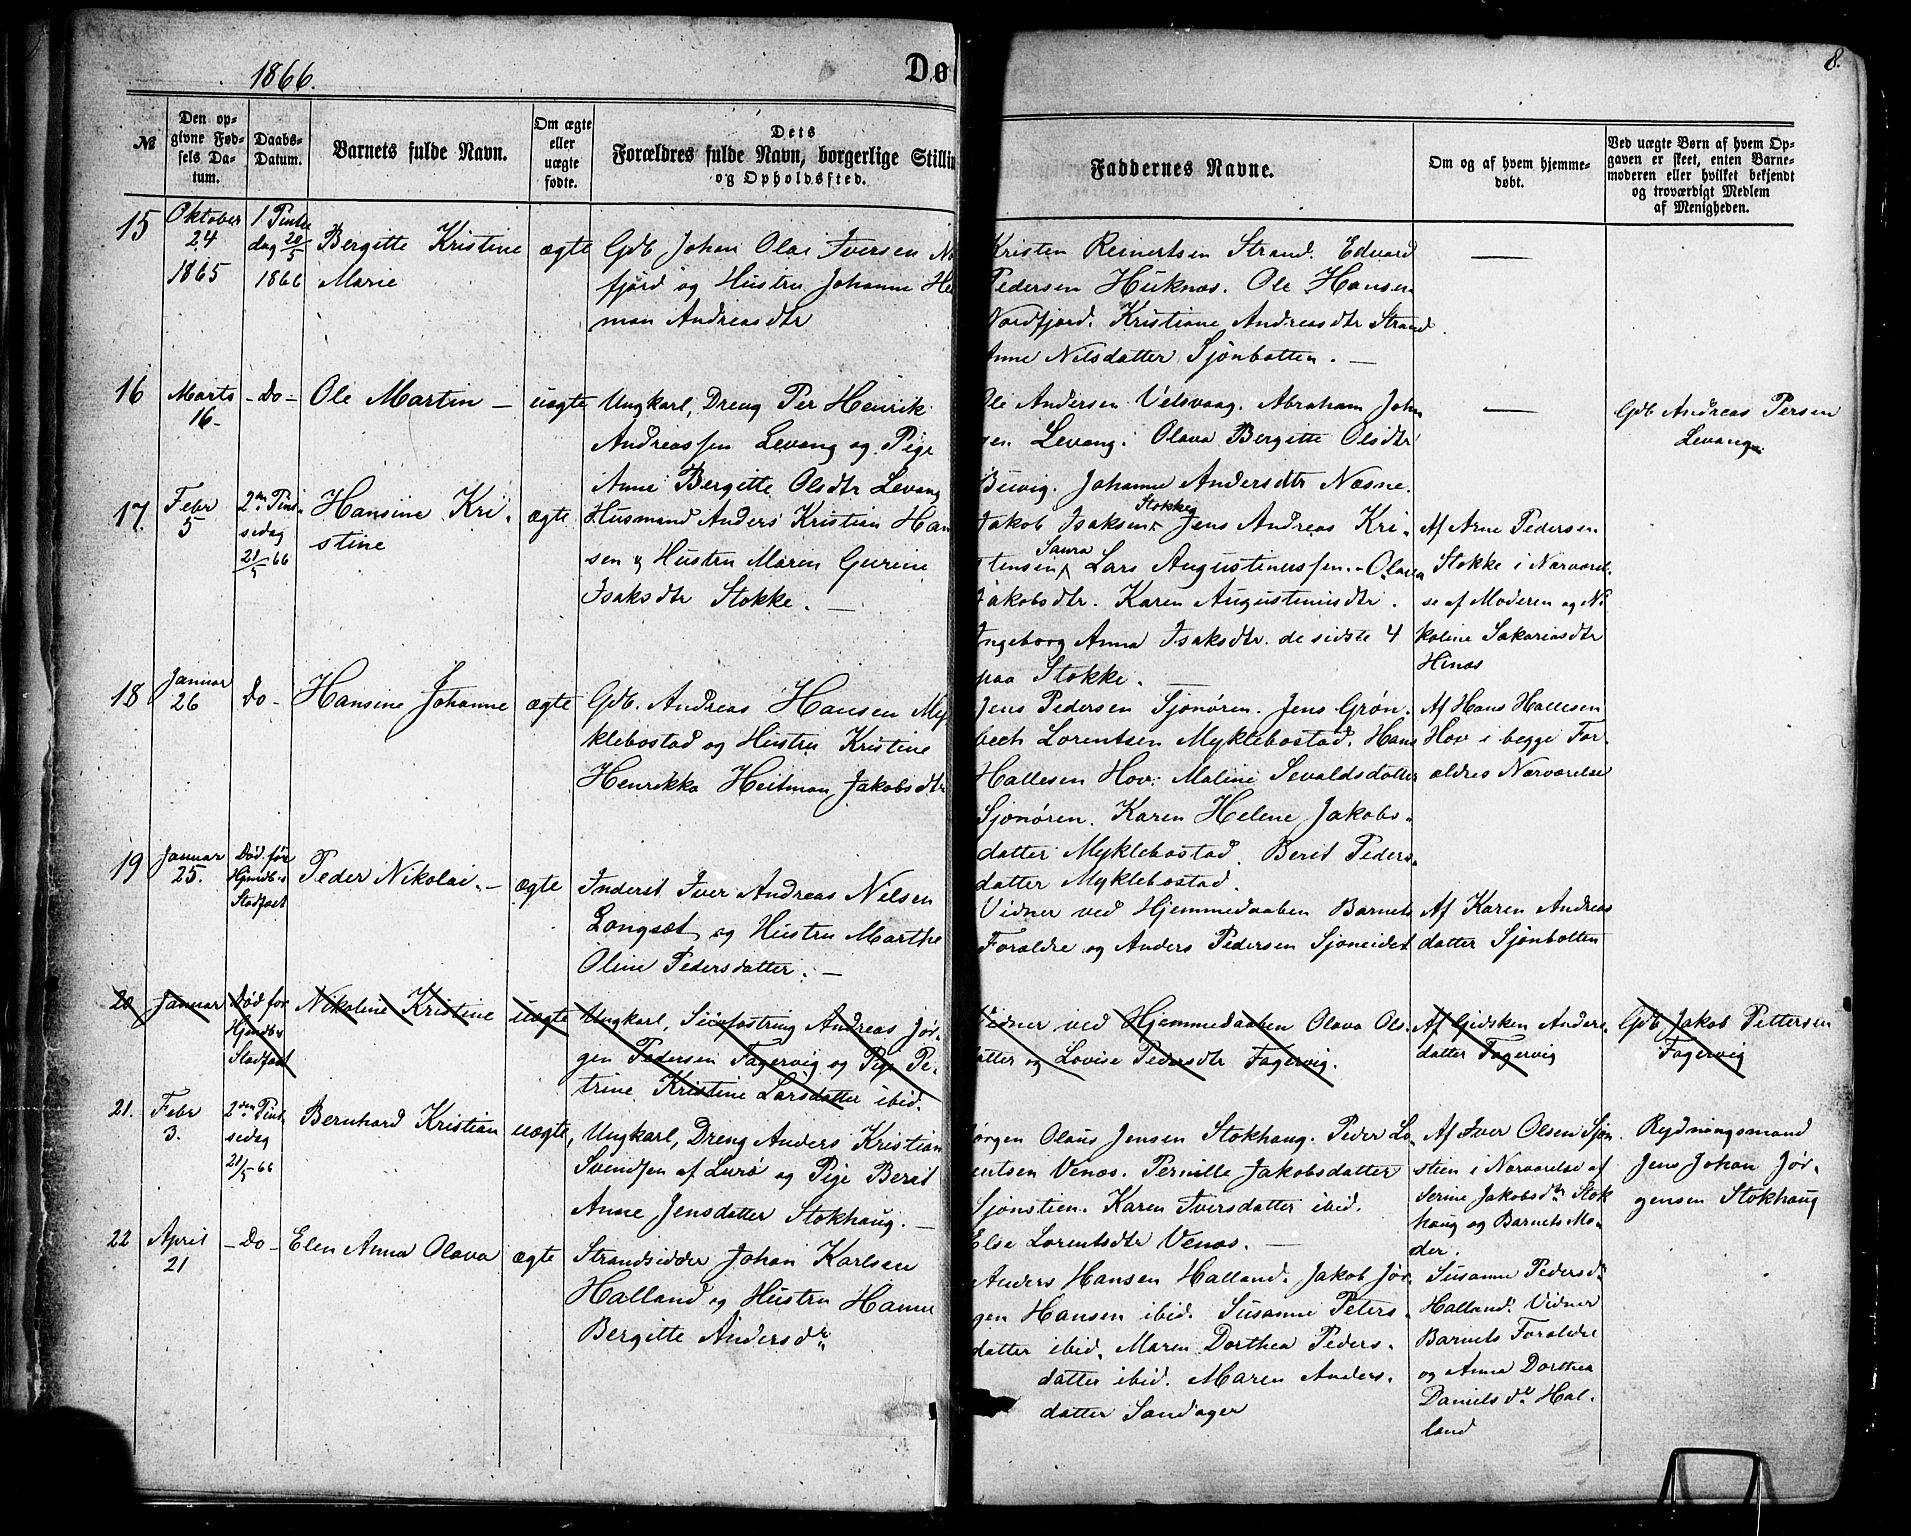 1866.
Dø
8.
№
Den op-
givne Fød-
sels Da-
tum.
Daabs-
Datum.
Barnets fulde Navn.
Om ægte
eller
uægte
fødte.
Dets
Forældres fulde Navn, borgerlige Stillin
og Opholdssted.
Faddernes Navne.
Om og af hvem hjemme-
døbt.
Ved uægte Børn af hvem Op-
gaven er skeet, enten Barne-
moderen eller hvilket bekjendt
og troværdigt Medlem
af Menigheden.
15
Oktober
24
1865
1. Pintse
dag 20/5
1866
Bergitte Kristine
Marie
ægte
Gdb Johan Olai Iversen No
fjord og Hustru Johanne Hei
man Andreasdtr
Kristen Reinertsen Strand. Edvard
Pedersen Huknæs. Ole Hansen
Nordfjord. Kristiane Andreasdtr Strand
Anne Nilsdatter Sjönbotten. —
—
16
Marts
16-
- Do -
Ole Martin -
uægte
Ungkarl, Dreng Per Henrik
Andreassen Levang og Pige
Anne Bergitte Olsdtr Levang
Ole Andersen Velsvaag. Abraham Joh
gen Levang. Olava Bergitte Olsdtr
Buvig. Johanne Andersdtr Næsne.
—
Gdb Andreas Persen
Levang
17.
Febr
5
2den Pint-
sedag
21/5 66
Hansine Kri-
stine
ægte
Husmand Anders Kristian Han
sen og Hustru Maren Gurine
Isaksdtr Stokke. —
Jakob Isaksen Stokke Jens Andreas Kri-
stensen Saura Lars Augustinussen. - Olava
Jakobsdtr. Karen Augustinusdtr.
Ingeborg Anna Isaksdtr. de sidste 4
paa Stokke. —
Af Arne Pedersen
Stokke i Nærværel-
se af Moderen og Ni
koline Sakariasdtr
Hinæs
18
Januar
26
Do -
Hansine Johanne
ægte
Gdb. Andreas Hansen My
klebostad og Hustru Kristine
Henrikka Heitman Jakobsdtr
Jens Pedersen Sjonøren. Jens Grøn-
bech Lorentsen Myklebostad. Hans
Hallesen Hov. Maline Sevaldsdatter
Sjonøren. Karen Helene Jakobs-
datter Myklebostad. Berit Peders-
datter Myklebostad.
Af Hans Hallesen
Hov i begge For-
ældres Nærværelse
19
Januar
25.
Död. før
Hjmdb.s
Stadfæst
Peder Nikolai. -
ægte
Inderst Iver Andreas Nilsen
Langsæt og Hustru Marthe
Oline Pedersdatter. —
Vidner ved Hjemmedaaben Barnets
Forældre og Anders Pedersen Sjoneidet
Af Karen Andreas
datter Sjönbotten
20
Januar
Död før
Hjmdb.s
Stadfæst
Nikoline Kristine
uægte
Ungkarl, Sönfostring Andreas Jör-
gen Pedersen Fagervig og Pige Pe-
trine Kristine Larsdatter ibid.
Vidner ved Hjemmedaaben Olava Ols-
datter og Lovise Pedersdtr Fagervig.
Af Gidsken Anders-
datter Fagervig
Gdb Jakob Pettersen
Fagervig
21.
Febr
3.
2den Pint-
sedag
21/5 66
Bernhard Kristian
uægte,
Ungkarl, Dreng Anders Kristian
Svendsen af Lurö og Pige Berit
Anne Jensdatter Stokhaug. —
Jørgen Olaus Jensen Stokhaug. Peder Lo-
rentsen Venæs. Pernille Jakobsdatter
Sjonstien. Karen Iversdatter ibid.
Else Lorentsdtr Venæs. —
Af Iver Olsen Sjon
stien i Nærværelse af
Serine Jakobsdtr Stok
haug og Barnets Mo-
der.
Rydningsmand
Jens Johan Jör-
gensen Stokhaug
22
April
21
- Do -
Elen Anna Olava
ægte
Strandsidder Johan Karlsen
Halland og Hustru Hanne
Bergitte Andersdr
Anders Hansen Halland. Jakob Jør-
gen Hansen ibid. Susanne Peters-
datter ibid. Maren Dorthea Peders-
datter ibid. Maren Anders-
datter Sandager
Susanne Pedersdr
Halland. Vidner
Barnets Forældre
og Anna Dorthea
Danielsdr Hal-
land